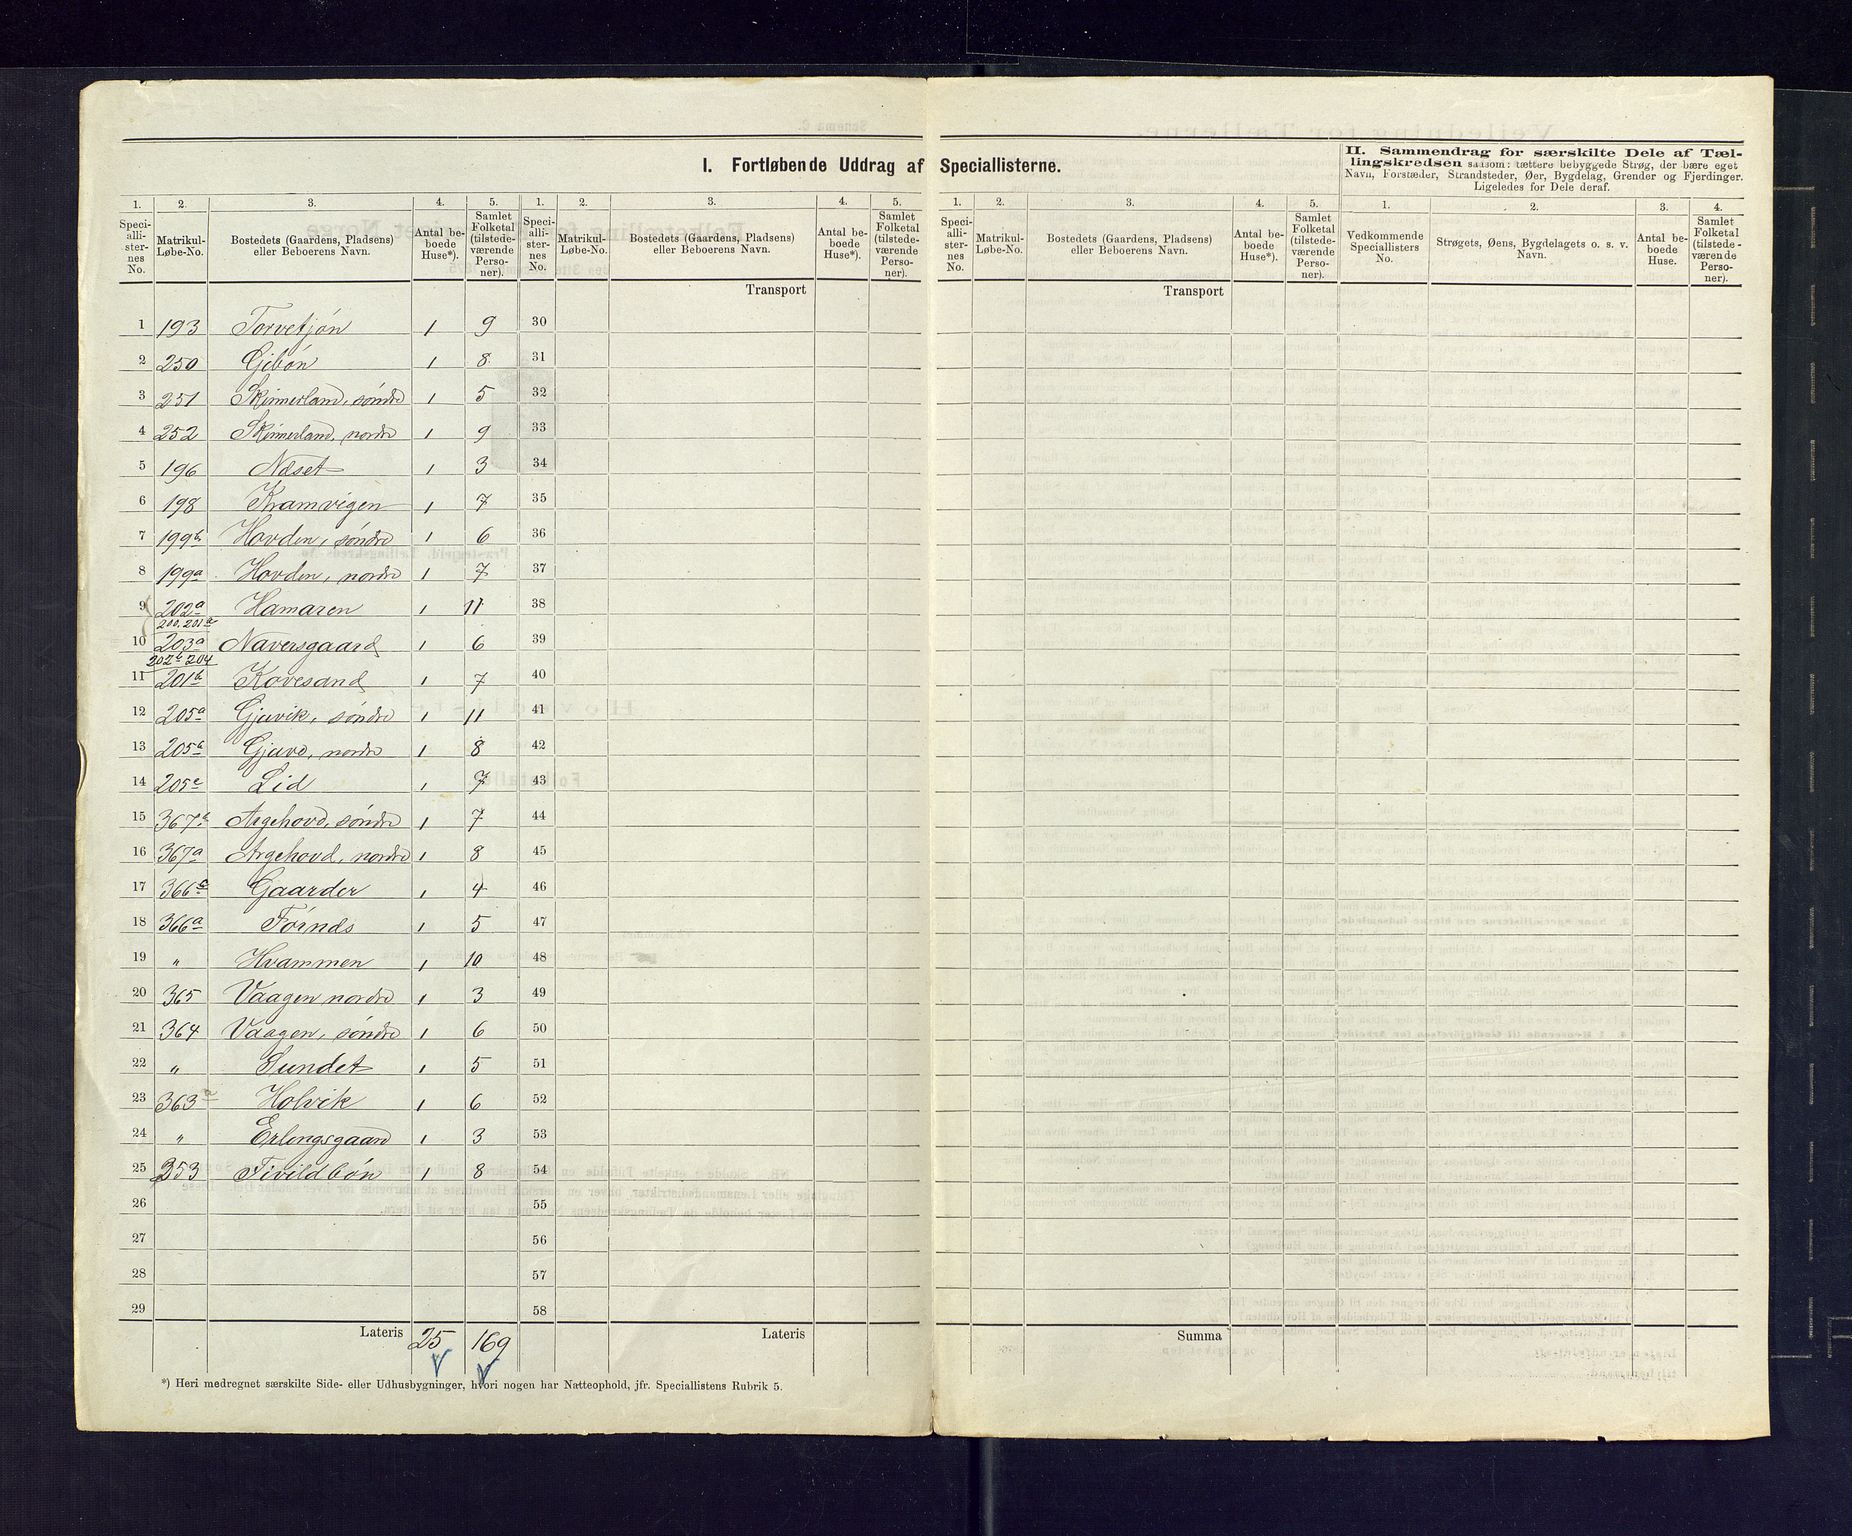 I. Fortløbende Uddrag af Speciallisterne.
II. Sammendrag for særskilte Dele af Tæl-
lingskredsen saasom: tættere bebyggede Strøg, der bære eget
Navn, Forstæder, Strandsteder, Øer, Bygdelag, Grender og Fjerdinger.
Ligeledes for Dele deraf.
1. 2. 3. 4. 5. 1. 2. 3. 4. 5. 1. 2. 3. 4. 5. 1. 2. 3. 4.
Speci-alli-ster-nes No. Matrikul-Løbe-No. Bostedets (Gaardens, Pladsens) eller Beboerens Navn. Antal be-boede Huse*). Samlet Folketal (tilstede-værende Perso-ner).
Speci-alli-ster-nes No. Matrikul-Løbe-No. Bostedets (Gaardens, Pladsens) eller Beboerens Navn. Antal be-boede Huse*). Samlet Folketal (tilstede-værende Perso-ner).
Speci-alli-ster-nes No. Matrikul-Løbe-No. Bostedets (Gaardens, Pladsens) eller Beboerens Navn. Antal be-boede Huse*). Samlet Folketal (tilstede-værende Perso-ner).
Vedkommende Speciallisters No. Strøgets, Øens, Bygdelagets o. s. v. Navn. Antal be-boede Huse. Samlet Folketal (tilstede-værende Perso-ner).
Transport Transport
1 193 Torvetjøn 1 9 30
2 250 Gjibøn 1 8 31
3 251 Skinnerland, søndre 1 5 32
4 252 Skinnerland, nordre 1 9 33
5 196 Næset 1 3 34
6 198 Kramvigen 1 7 35
7 199b Hovden, søndre 1 6 36
8 199a Hovden, nordre 1 7 37
9 202a Hamaren 1 11 38
200. 201a
10 203a Naversgaard 1 6 39
202b 204
11 201b Kovesand 1 7 40
12 205a Gjuvik, søndre 1 11 41
13 205b Gjuve, nordre 1 8 42
14 205c Lid 1 7 43
15 367b Argehovd, søndre 1 7 44
16 367a Argehovd, nordre 1 8 45
17 366c Gaarder 1 4 46
18 366a Førnæs 1 5 47
19 " Hvammen 1 10 48
20 365 Vaagen nordre 1 3 49
21 364 Vaagen, søndre 1 6 50
22 " Sundet 1 5 51
23 363a Holvik 1 6 52
24 " Erlongsgaard 1 3 53
25 353 Tivildbøn 1 8 54
26 55
27 56
28 57
29 58
Lateris 25 169 Lateris Summa
*) Heri medregnet særskilte Side- eller Udhusbygninger, hvori nogen har Natteophold, jfr. Speciallistens Rubrik 5.